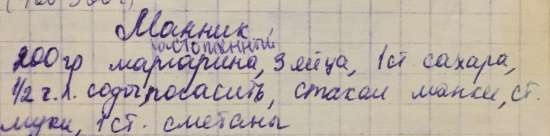 Манник
растопленный
200 гр маргарина, 3 яйца, 1 ст сахара,
1/2 ч.л. соды, погасить, стакан манки, ст.
муки, 1 ст. сметаны